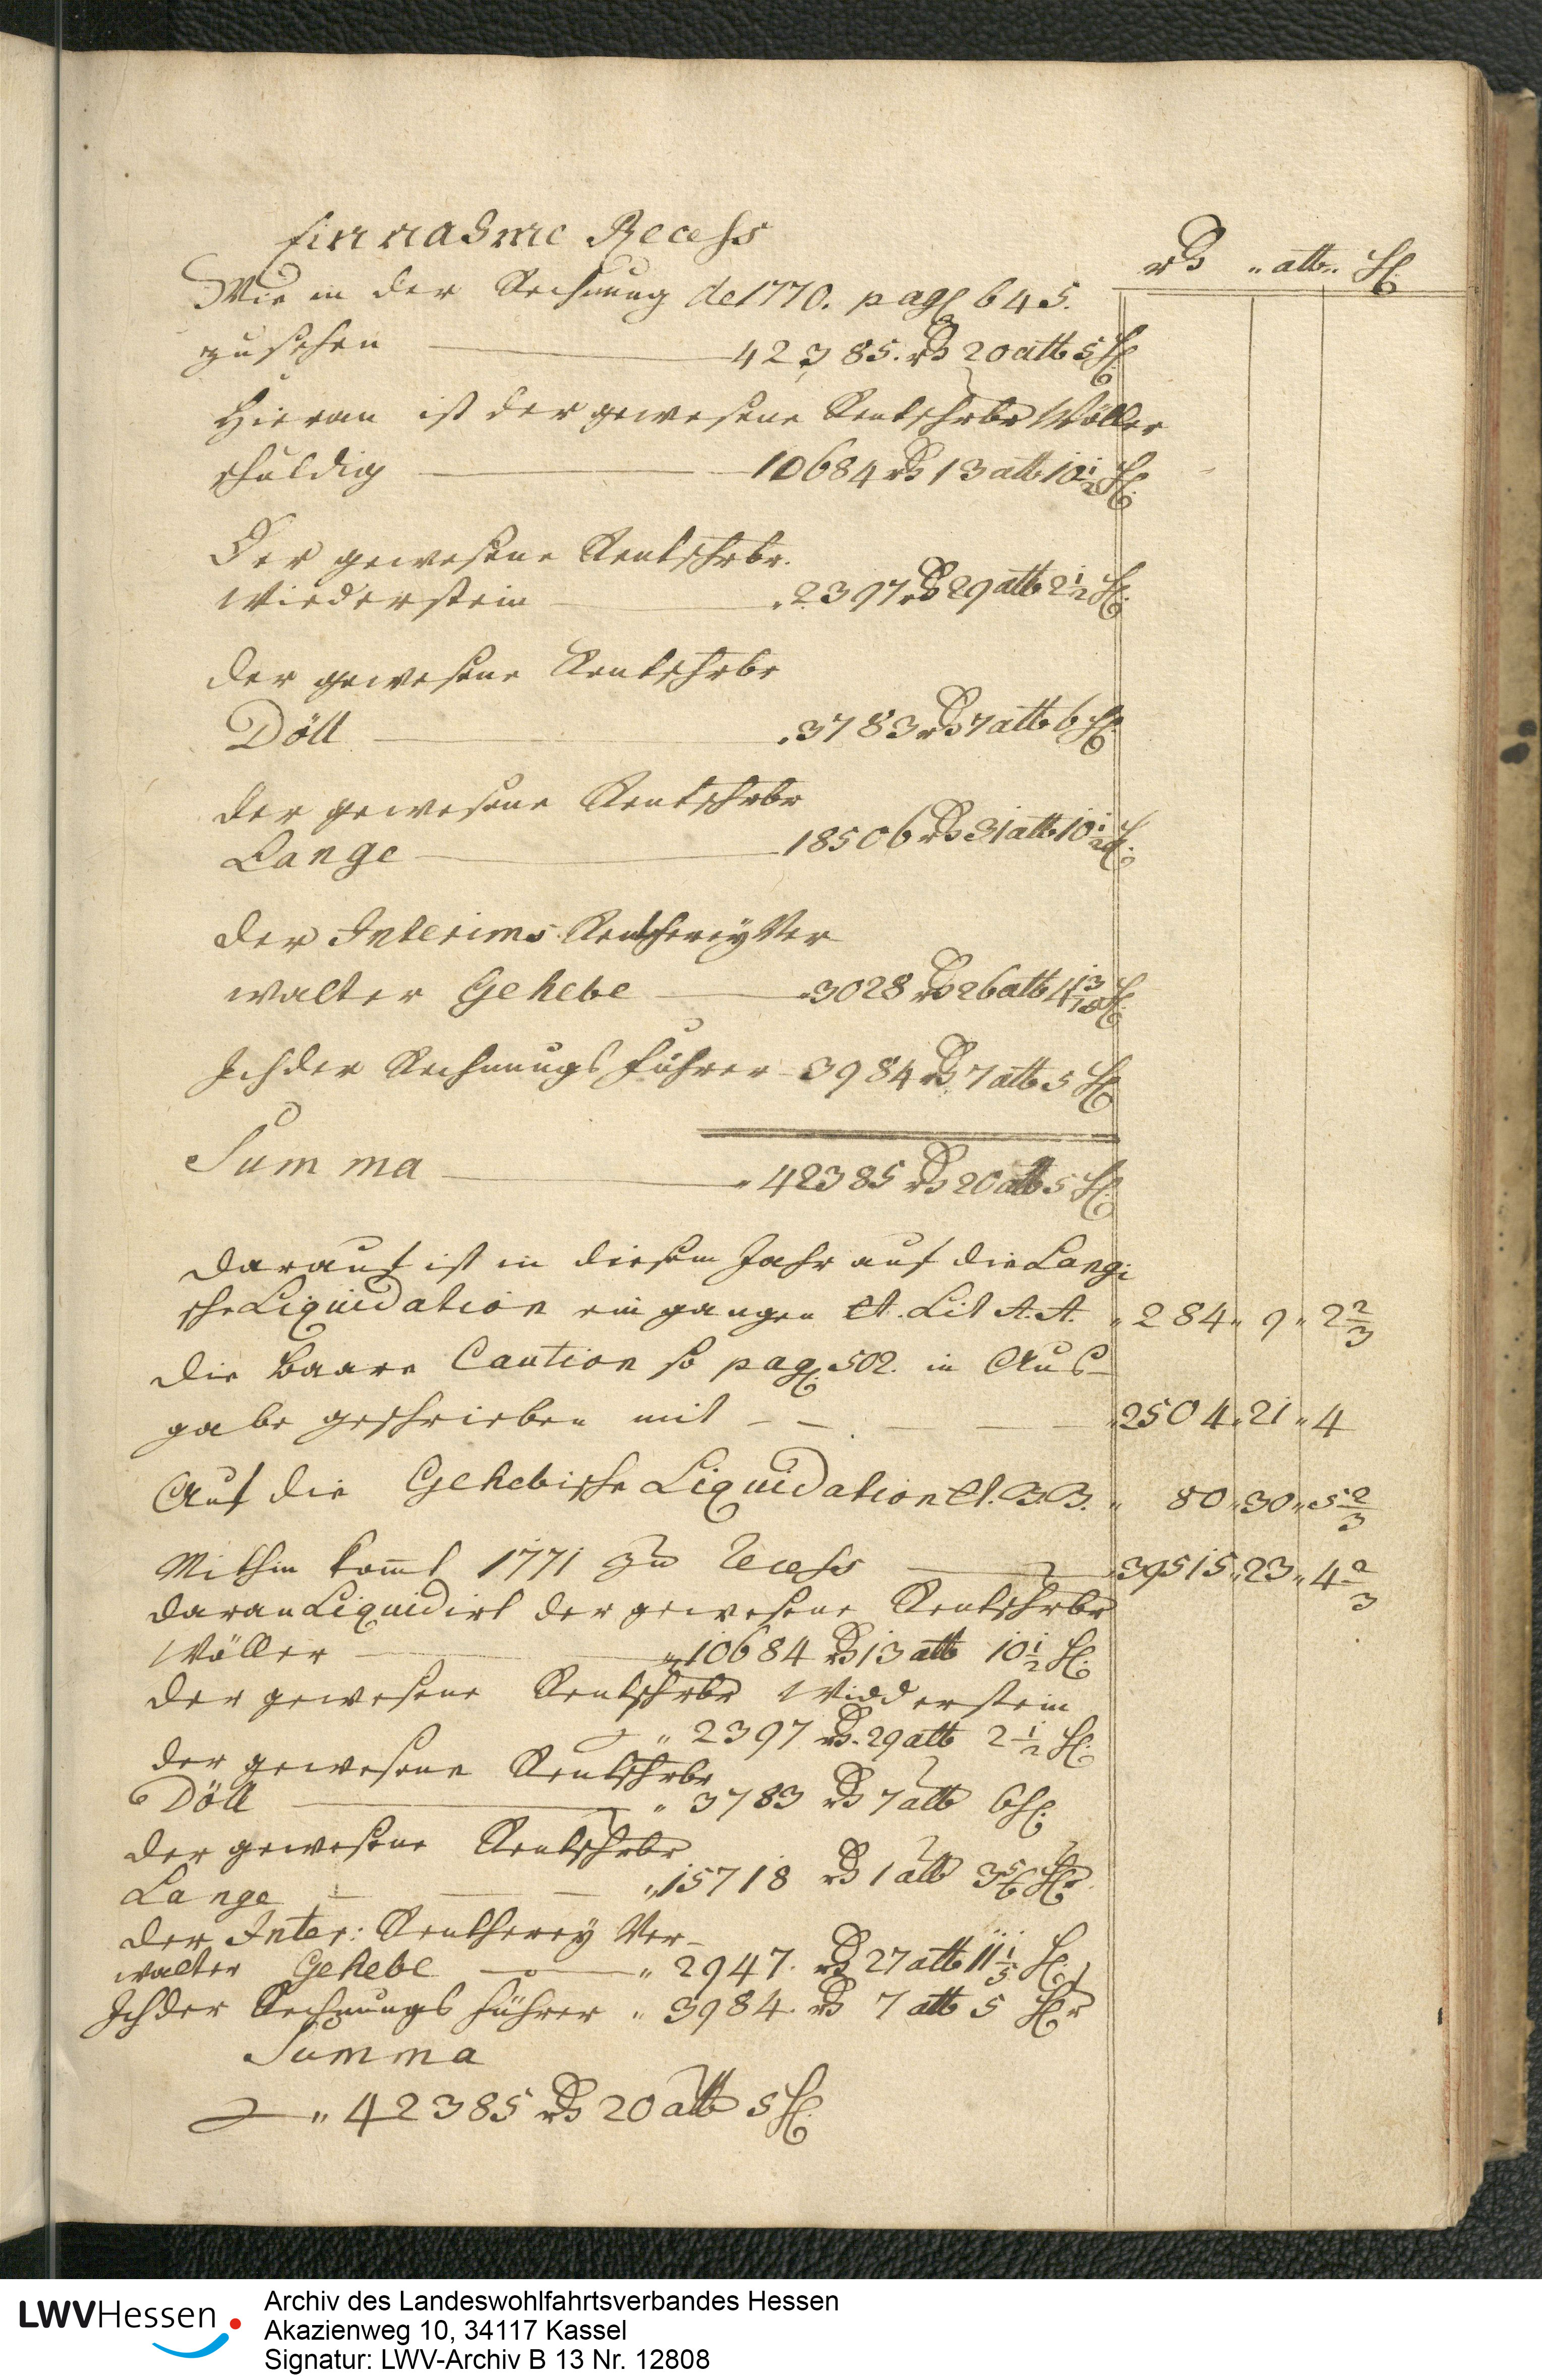 Einnahme Recess
rthlr „ alb „ hl.
Wie in der Rechnung de 1770. pag. 645.
zu sehen — 42385. rthlr 20 alb 5 hl.
Hieran ist der gewesene Rentschrbr Wöller
schuldig — 10684 rthlr 13 alb 10 1/2 hl.
Der gewesene Rentschrbr.
Wiederstein — „ 2397 rthlr 29 alb 2 1/2 hl.
der gewesene Rentschrbr
Döll — „ 3783 rthlr 7 alb 6 hl.
der gewesene Rentschrbr
Lange — 18506 rthlr 31 alb 10 1/2 hl.
der Interims Rentherey Ver
walter Gehebe — 3028 rthlr 26 alb hl.
Ich der Rechnungs führer — 3984 rthlr 7 alb 5 hl.
Summa — „ 42385 rthlr 20 alb 5 hl.
darauf ist in diesem Jahr auf die Langi
sche Liquidation ein gangen Lit A.A. „ 284 „ 9 „ 2 2/3
die baare Caution so pag. 502. in Aus-
gabe geschrieben mit — — — — „ 2504 „ 21 „ 4
Auf die Gehebische Liquidation B.B. „ 80 „ 30 „ 5 2/3
Mithin kom̄t 1771 zu recess — 39515 „ 23 „ 4 2/3
daran Liquidirt der gewesene Rentschrbr
Wöller — „ 10684 rthlr 13 alb 10 1/2 hl.
der gewesene Rentschrbr Widderstein
„ 2397 rthlr 29 alb 2 1/2 hl.
der gewesene Rentschrbr
Döll — „ 3783 rthlr 7 alb 6 hl.
der gewesene Rentschrbr
Lange — — — „ 15718 rthlr 1 alb 3 5/6 hl.
der Inter: Rentherey Ver-
walter Gehebe — „ 2947. rthlr 27 alb 11 1/5 hl.
Ich der Rechnungs führer „ 3984. rthlr 7 alb 5 hl.
Summa
„ 42385 rthlr 20 alb 5 hl.
LWVHessen
Archiv des Landeswohlfahrtsverbandes Hessen
Akazienweg 10, 34117 Kassel
Signatur: LWV-Archiv B 13 Nr. 12808